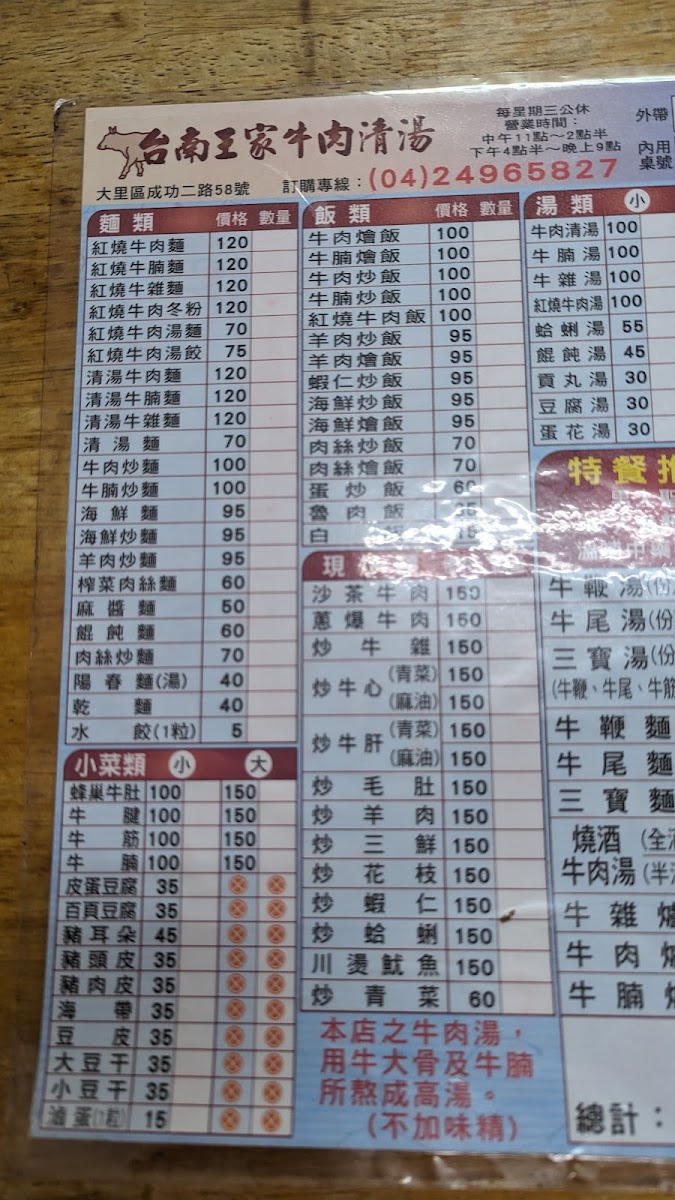 台南王家牛肉清湯
每星期三公休
營業時間：
中午11點～2點半
下午4點半～晚上9點
外帶
內用
桌號
大里區成功二路58號 訂購專線：(04)24965827
麵類 價格 數量
紅燒牛肉麵 120
紅燒牛腩麵 120
紅燒牛雜麵 120
紅燒牛肉冬粉 120
紅燒牛肉湯麵 70
紅燒牛肉湯餃 75
清湯牛肉麵 120
清湯牛腩麵 120
清湯牛雜麵 120
清湯麵 70
牛肉炒麵 100
牛腩炒麵 100
海鮮麵 95
海鮮炒麵 95
羊肉炒麵 95
榨菜肉絲麵 60
麻醬麵 50
餛飩麵 60
肉絲炒麵 70
陽春麵(湯) 40
乾麵 40
水餃(1粒) 5
小菜類 小 大
蜂巢牛肚 100 150
牛腱 100 150
牛筋 100 150
牛腩 100 150
皮蛋豆腐 35
百頁豆腐 35
豬耳朵 45
豬頭皮 35
豬肉皮 35
海帶 35
豆皮 35
大豆干 35
小豆干 35
滷蛋(1粒) 15
飯類 價格 數量
牛肉燴飯 100
牛腩燴飯 100
牛肉炒飯 100
牛腩炒飯 100
紅燒牛肉飯 100
羊肉炒飯 95
羊肉燴飯 95
蝦仁炒飯 95
海鮮炒飯 95
海鮮燴飯 95
肉絲炒飯 70
肉絲燴飯 70
蛋炒飯 60
魯肉飯
白
現
沙茶牛肉 150
蔥爆牛肉 150
炒牛雜 150
炒牛心 (青菜) 150
(麻油) 150
炒牛肝 (青菜) 150
(麻油) 150
炒毛肚 150
炒羊肉 150
炒三鮮 150
炒花枝 150
炒蝦仁 150
炒蛤蜊 150
川燙魷魚 150
炒青菜 60
本店之牛肉湯，
用牛大骨及牛腩
所熬成高湯。
(不加味精)
湯類 小
牛肉清湯 100
牛腩湯 100
牛雜湯 100
紅燒牛肉湯 100
蛤蜊湯 55
餛飩湯 45
貢丸湯 30
豆腐湯 30
蛋花湯 30
特餐推
牛鞭湯(份
牛尾湯(份
三寶湯(份
(牛鞭、牛尾、牛筋
牛鞭麵
牛尾麵
三寶麵
燒酒 (全
牛肉湯 (半
牛雜
牛肉
牛腩
總計：